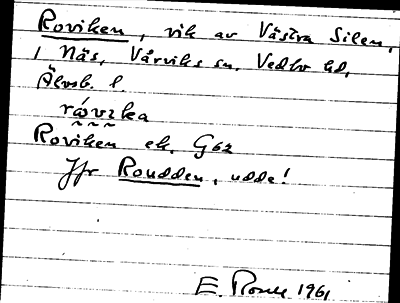 Roviken, vik av Västra Silen,
i Näs, Vårviks sn, Vedbo hd,
Älvsb. l.
Roviken ek. G62
Jfr Roudden, udde!
E. 1961